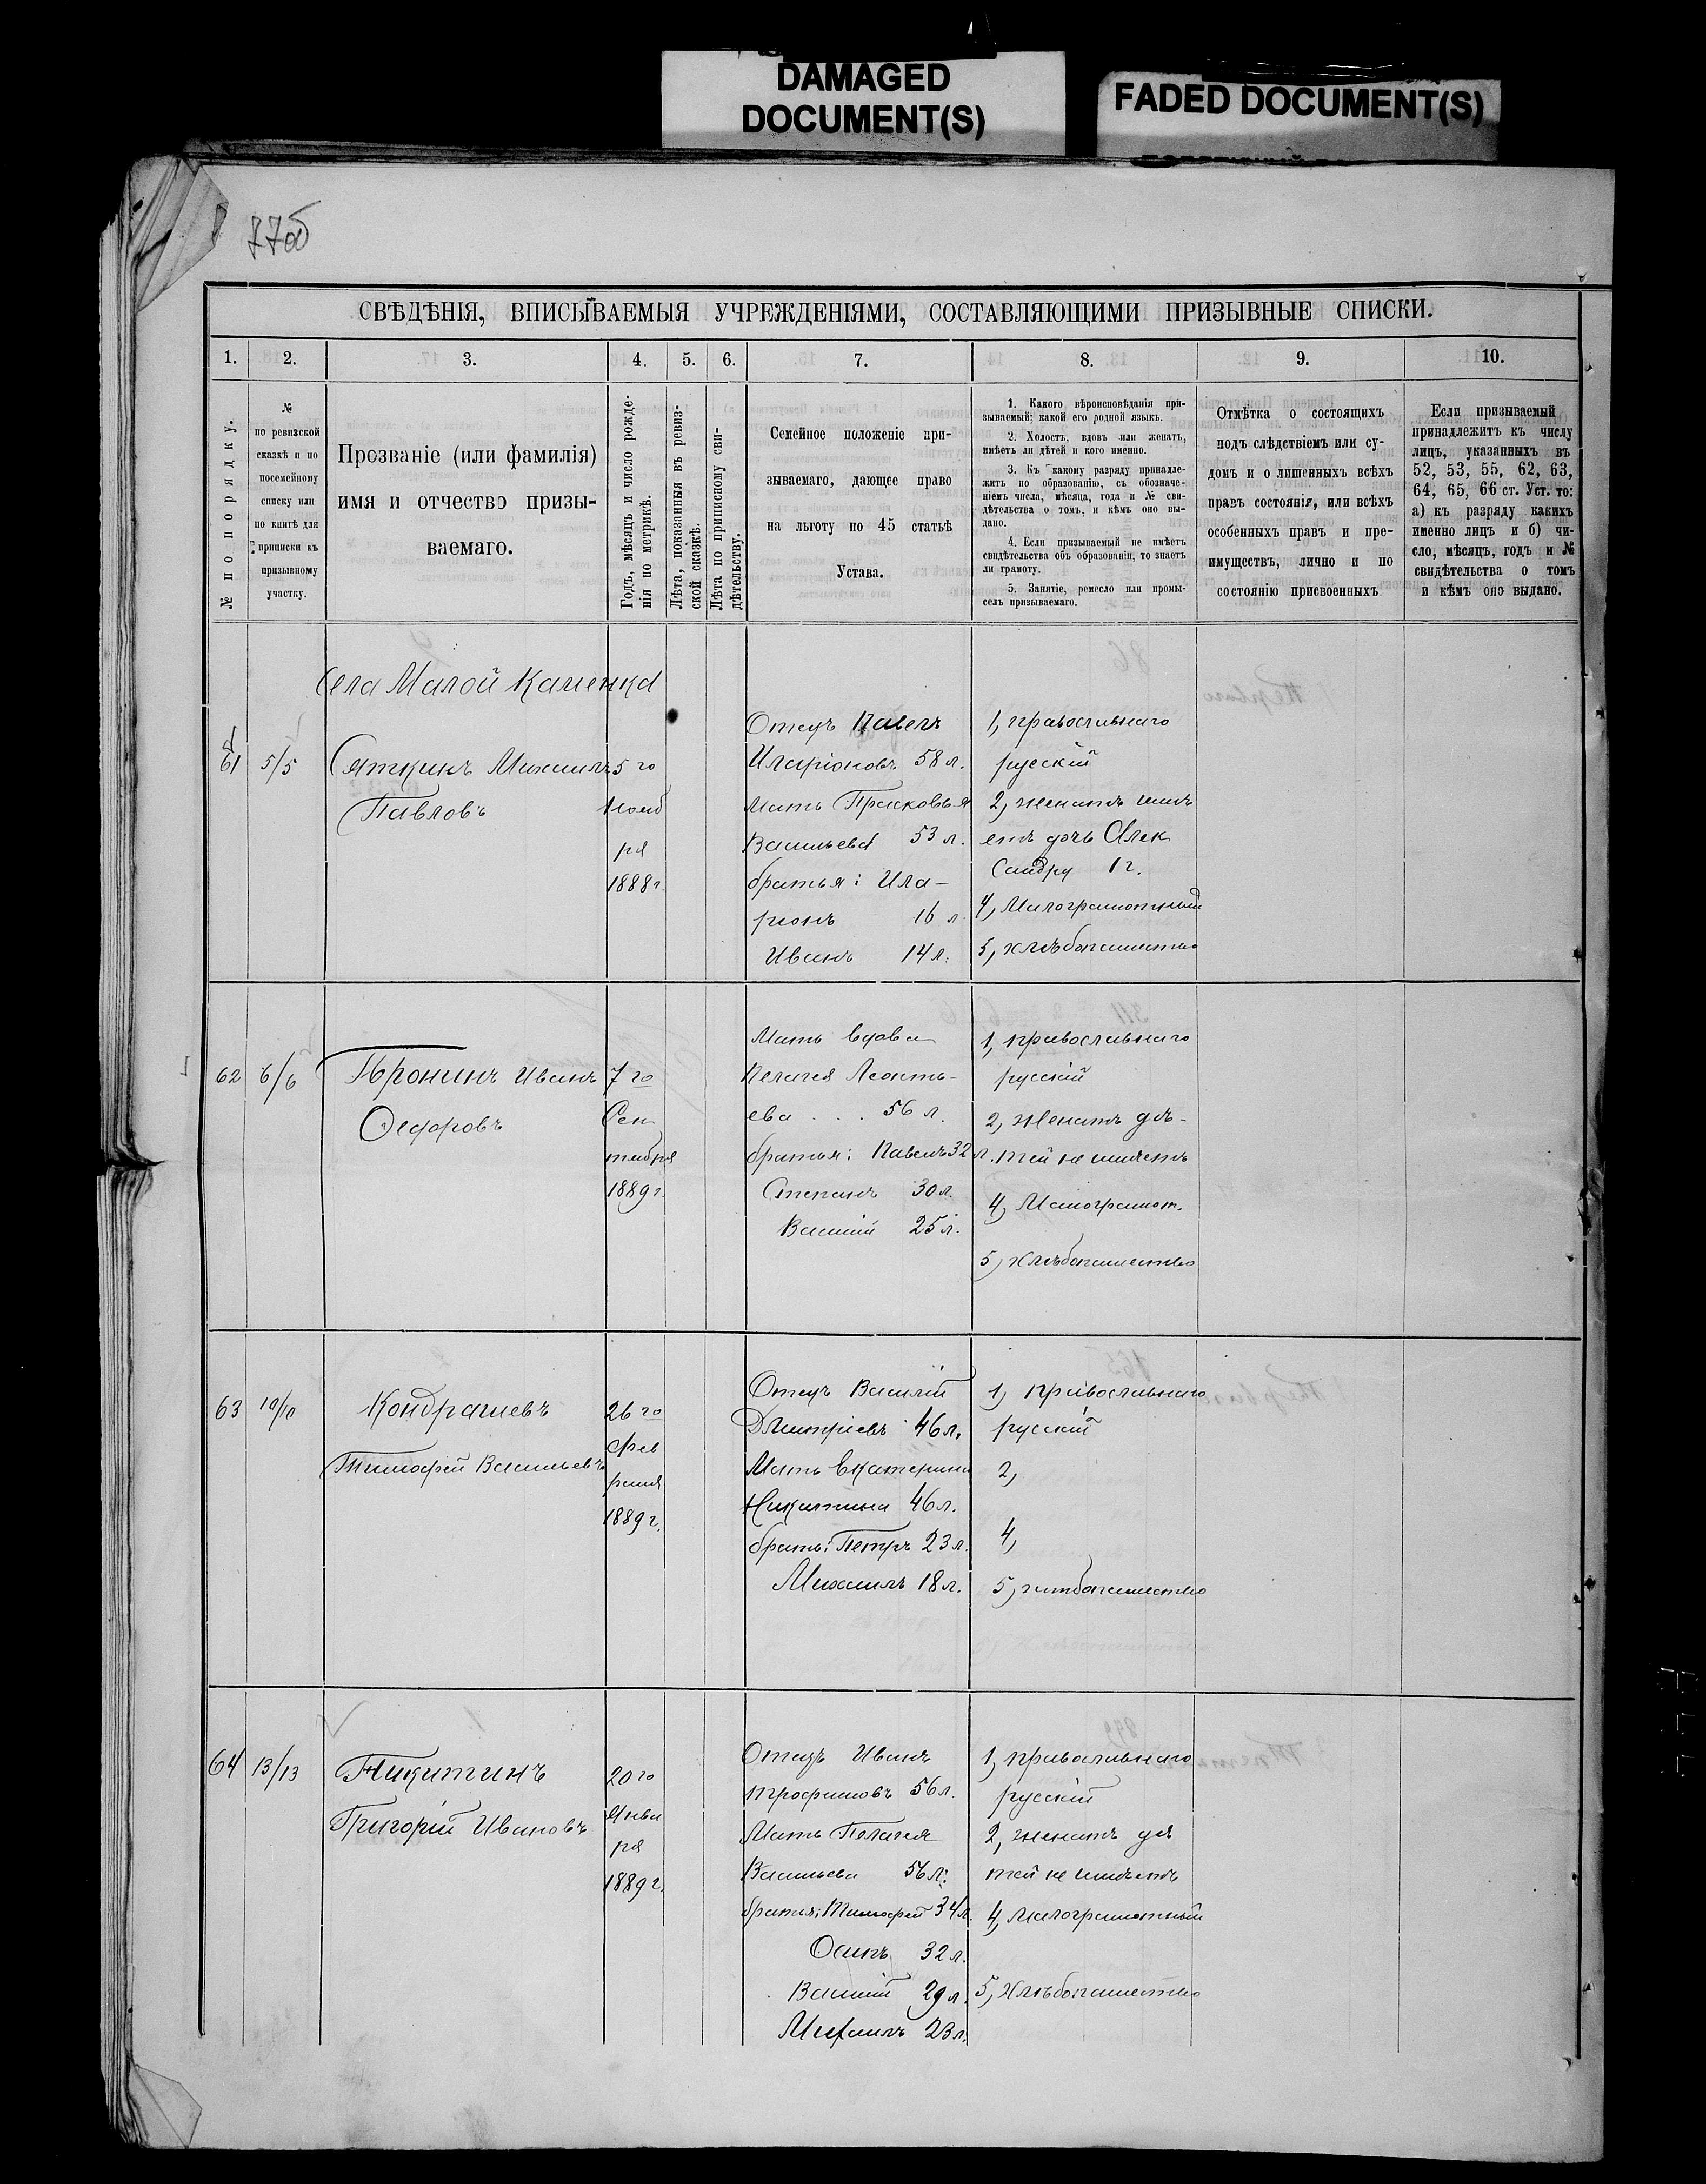 DAMAGED
DOCUMENT(S)
FADED DOCUMENT(S)
77об
СВѢДѢНІЯ, ВПИСЫВАЕМЫЯ УЧРЕЖДЕНІЯМИ, СОСТАВЛЯЮЩИМИ ПРИЗЫВНЫЕ СПИСКИ.
1. 2. 3. 4. 5. 6. 7. 8. 9. 10.
№ по порядку.
№
по ревизской
сказкѣ и по
посемейному
списку или
по книгѣ для
приписки къ
призывному
участку.
Прозваніе (или фамилія)
имя и отчество призы-
ваемаго.
Годъ, мѣсяцъ и число рожде-
нія по метрикѣ.
Лѣта, показанныя въ ревиз-
ской сказкѣ.
Лѣта по приписному сви-
дѣтельству.
Семейное положеніе при-
зываемаго, дающее право
на льготу по 45 статьѣ
Устава.
1. Какого вѣроисповѣданія при-
зываемый; какой его родной языкъ.
2. Холостъ, вдовъ или женатъ,
имѣетъ ли дѣтей и кого именно.
3. Къ какому разряду принадле-
житъ по образованію, съ обозначе-
ніемъ числа, мѣсяца, года и № сви-
дѣтельства о томъ, и кѣмъ оно вы-
дано.
4. Если призываемый не имѣетъ
свидѣтельства объ образованіи, то знаетъ
ли грамоту.
5. Занятіе, ремесло или промы-
селъ призываемаго.
Отмѣтка о состоящихъ
подъ слѣдствіемъ или су-
домъ и о лишенныхъ всѣхъ
правъ состоянія, или всѣхъ
особенныхъ правъ и пре-
имуществъ, лично и по
состоянію присвоенныхъ
Если призываемый
принадлежитъ къ числу
лицъ, указанныхъ въ
52, 53, 55, 62, 63,
64, 65, 66 ст. Уст. то:
а) къ разряду какихъ
именно лицъ и б) чи-
сло, мѣсяцъ, годъ и №
свидѣтельства о томъ
и кѣмъ оно выдано.
Села Малой Каменка
61
5/5
Сяткинъ Михаилъ
Павловъ
5 го
Нояб
ря
1888 г.
Отецъ Павелъ
Иларіоновъ 58 л.
мать Прасковья
Васильева 53 л.
братья: Ила-
ріонъ 16 л.
Иванъ 14 л.
1, православнаго
русскій
2, женатъ имѣ
етъ дочь Алек
сандру 1 г.
4, Малограмотный
5, хлѣбопашество
62
6/6
Пронинъ Иванъ
Ѳедоровъ
7 го
Сен
тября
1889 г.
Мать вдова
Пелагея Леонть-
ева . . . 56 л.
братья: Павелъ 32 л.
Степанъ 30 л.
Василій 25 л.
1, православнаго
русскій
2, женатъ дѣ-
тей не имѣетъ
4, Малограмот.
5, хлѣбопашество
63
10/10
Кондрашевъ
Тимофей Васильевъ
26 го
Фев
раля
1889 г.
Отецъ Василій
Дмитріевъ 46 л.
Мать Екатерина
Никитина 46 л.
братья: Петръ 23 л.
Михаилъ 18 л.
1, православнаго
русскій
2,
4,
5, хлѣбопашество
64
13/13
Никитинъ
Григорій Ивановъ
20 го
Янва
ря
1889 г.
Отецъ Иванъ
Трофимовъ 56 л.
Мать Пелагея
Васильева 56 л.
братья: Тимофей 34 л.
Осипъ 32 л.
Василій 29 л.
Михаилъ 23 л.
1, православнаго
русскій
2, женатъ дѣ
тей не имѣетъ
4, малограмотный
5, хлѣбопашество